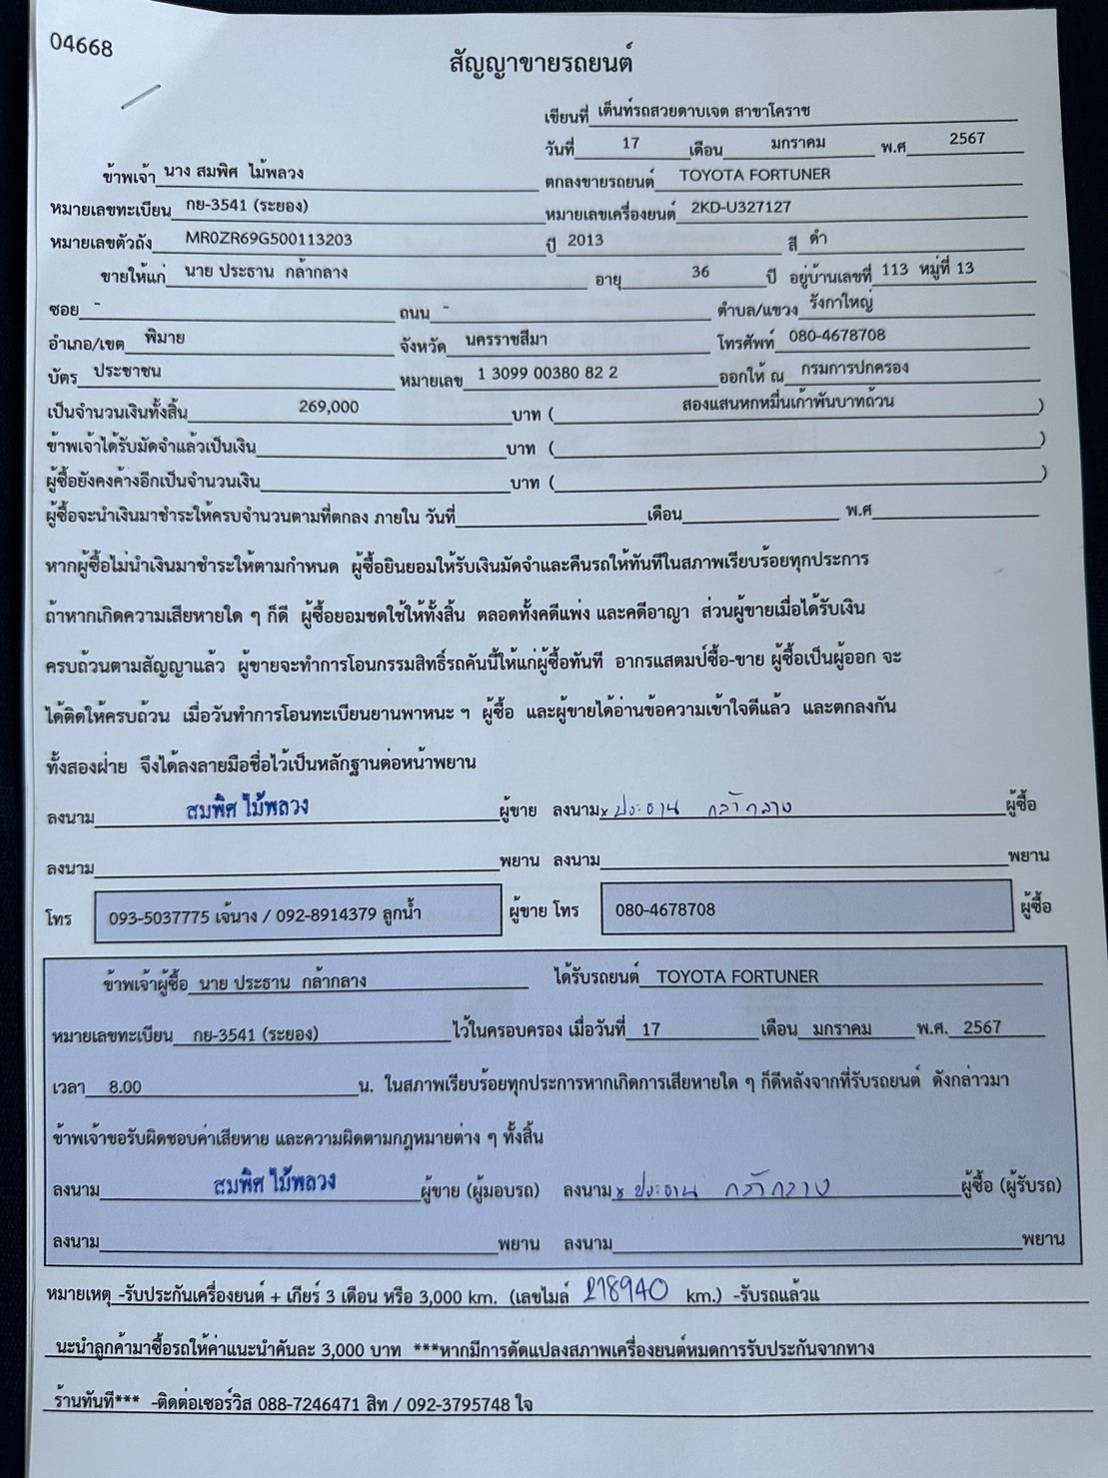 04668
สัญญาขายรถยนต์
เขียนที่ เต็นท์รถสวยดาบเจต สาขาโคราช
วันที่ 17 เดือน มกราคม พ.ศ 2567
ข้าพเจ้า นาง สมพิศ ไม้พลวง ตกลงขายรถยนต์ TOYOTA FORTUNER
หมายเลขทะเบียน กย-3541 (ระยอง) หมายเลขเครื่องยนต์ 2KD-U327127
หมายเลขตัวถัง MR0ZR69G500113203 ปี 2013 สี ดำ
ขายให้แก่ นาย ประธาน กล้ากลาง อายุ 36 ปี อยู่บ้านเลขที่ 113 หมู่ที่ 13
ซอย - ถนน - ตำบล/แขวง รังกาใหญ่
อำเภอ/เขต พิมาย จังหวัด นครราชสีมา โทรศัพท์ 080-4678708
บัตร ประชาชน หมายเลข 1 3099 00380 82 2 ออกให้ ณ กรมการปกครอง
เป็นจำนวนเงินทั้งสิ้น 269,000 บาท ( สองแสนหกหมื่นเก้าพันบาทถ้วน )
ข้าพเจ้าได้รับมัดจำแล้วเป็นเงิน บาท ( )
ผู้ซื้อยังคงค้างอีกเป็นจำนวนเงิน บาท ( )
ผู้ซื้อจะนำเงินมาชำระให้ครบจำนวนตามที่ตกลง ภายใน วันที่ เดือน พ.ศ
หากผู้ซื้อไม่นำเงินมาชำระให้ตามกำหนด ผู้ซื้อยินยอมให้รับเงินมัดจำและคืนรถให้ทันทีในสภาพเรียบร้อยทุกประการ
ถ้าหากเกิดความเสียหายใด ๆ ก็ดี ผู้ซื้อยอมชดใช้ให้ทั้งสิ้น ตลอดทั้งคดีแพ่ง และคดีอาญา ส่วนผู้ขายเมื่อได้รับเงิน
ครบถ้วนตามสัญญาแล้ว ผู้ขายจะทำการโอนกรรมสิทธิ์รถคันนี้ให้แก่ผู้ซื้อทันที อากรแสตมป์ซื้อ-ขาย ผู้ซื้อเป็นผู้ออก จะ
ได้ติดให้ครบถ้วน เมื่อวันทำการโอนทะเบียนยานพาหนะ ฯ ผู้ซื้อ และผู้ขายได้อ่านข้อความเข้าใจดีแล้ว และตกลงกัน
ทั้งสองฝ่าย จึงได้ลงลายมือชื่อไว้เป็นหลักฐานต่อหน้าพยาน
ลงนาม สมพิศ ไม้พลวง ผู้ขาย ลงนาม x ประธาน กล้ากลาง ผู้ซื้อ
ลงนาม พยาน ลงนาม พยาน
โทร 093-5037775 เจ้นาง / 092-8914379 ลูกน้ำ ผู้ขาย โทร 080-4678708 ผู้ซื้อ
ข้าพเจ้าผู้ซื้อ นาย ประธาน กล้ากลาง ได้รับรถยนต์ TOYOTA FORTUNER
หมายเลขทะเบียน กย-3541 (ระยอง) ไว้ในครอบครอง เมื่อวันที่ 17 เดือน มกราคม พ.ศ. 2567
เวลา 8.00 น. ในสภาพเรียบร้อยทุกประการหากเกิดการเสียหายใด ๆ ก็ดีหลังจากที่รับรถยนต์ ดังกล่าวมา
ข้าพเจ้าขอรับผิดชอบค่าเสียหาย และความผิดตามกฎหมายต่าง ๆ ทั้งสิ้น
ลงนาม สมพิศ ไม้พลวง ผู้ขาย (ผู้มอบรถ) ลงนาม x ประธาน กล้ากลาง ผู้ซื้อ (ผู้รับรถ)
ลงนาม พยาน ลงนาม พยาน
หมายเหตุ -รับประกันเครื่องยนต์ + เกียร์ 3 เดือน หรือ 3,000 km. (เลขไมล์ 218940 km.) -รับรถแล้วแ
นะนำลูกค้ามาซื้อรถให้ค่าแนะนำคันละ 3,000 บาท ***หากมีการดัดแปลงสภาพเครื่องยนต์หมดการรับประกันจากทาง
ร้านทันที*** -ติดต่อเซอร์วิส 088-7246471 สิท / 092-3795748 ใจ